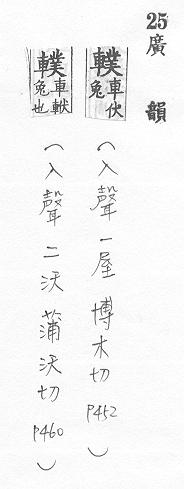 25 廣韻
轐 車伏兔
(入聲一屋 博木切 P452)
轐 車兔也
(入聲二沃 蒲沃切 P460)